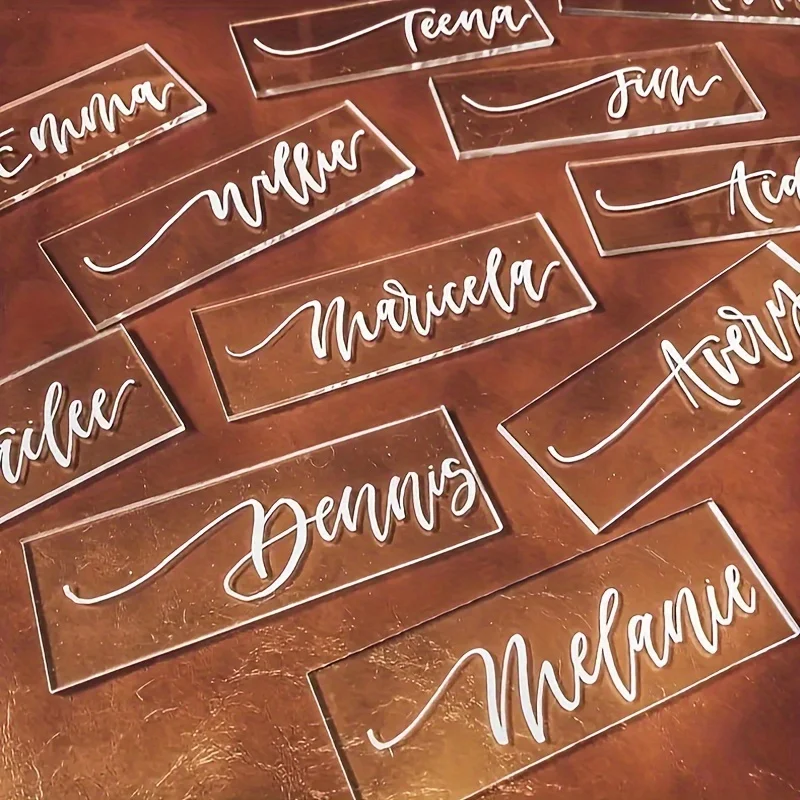 Teena
Jim
Emma
Willie
Aid
Maricela
Avery
cilee
Dennis
Melanie